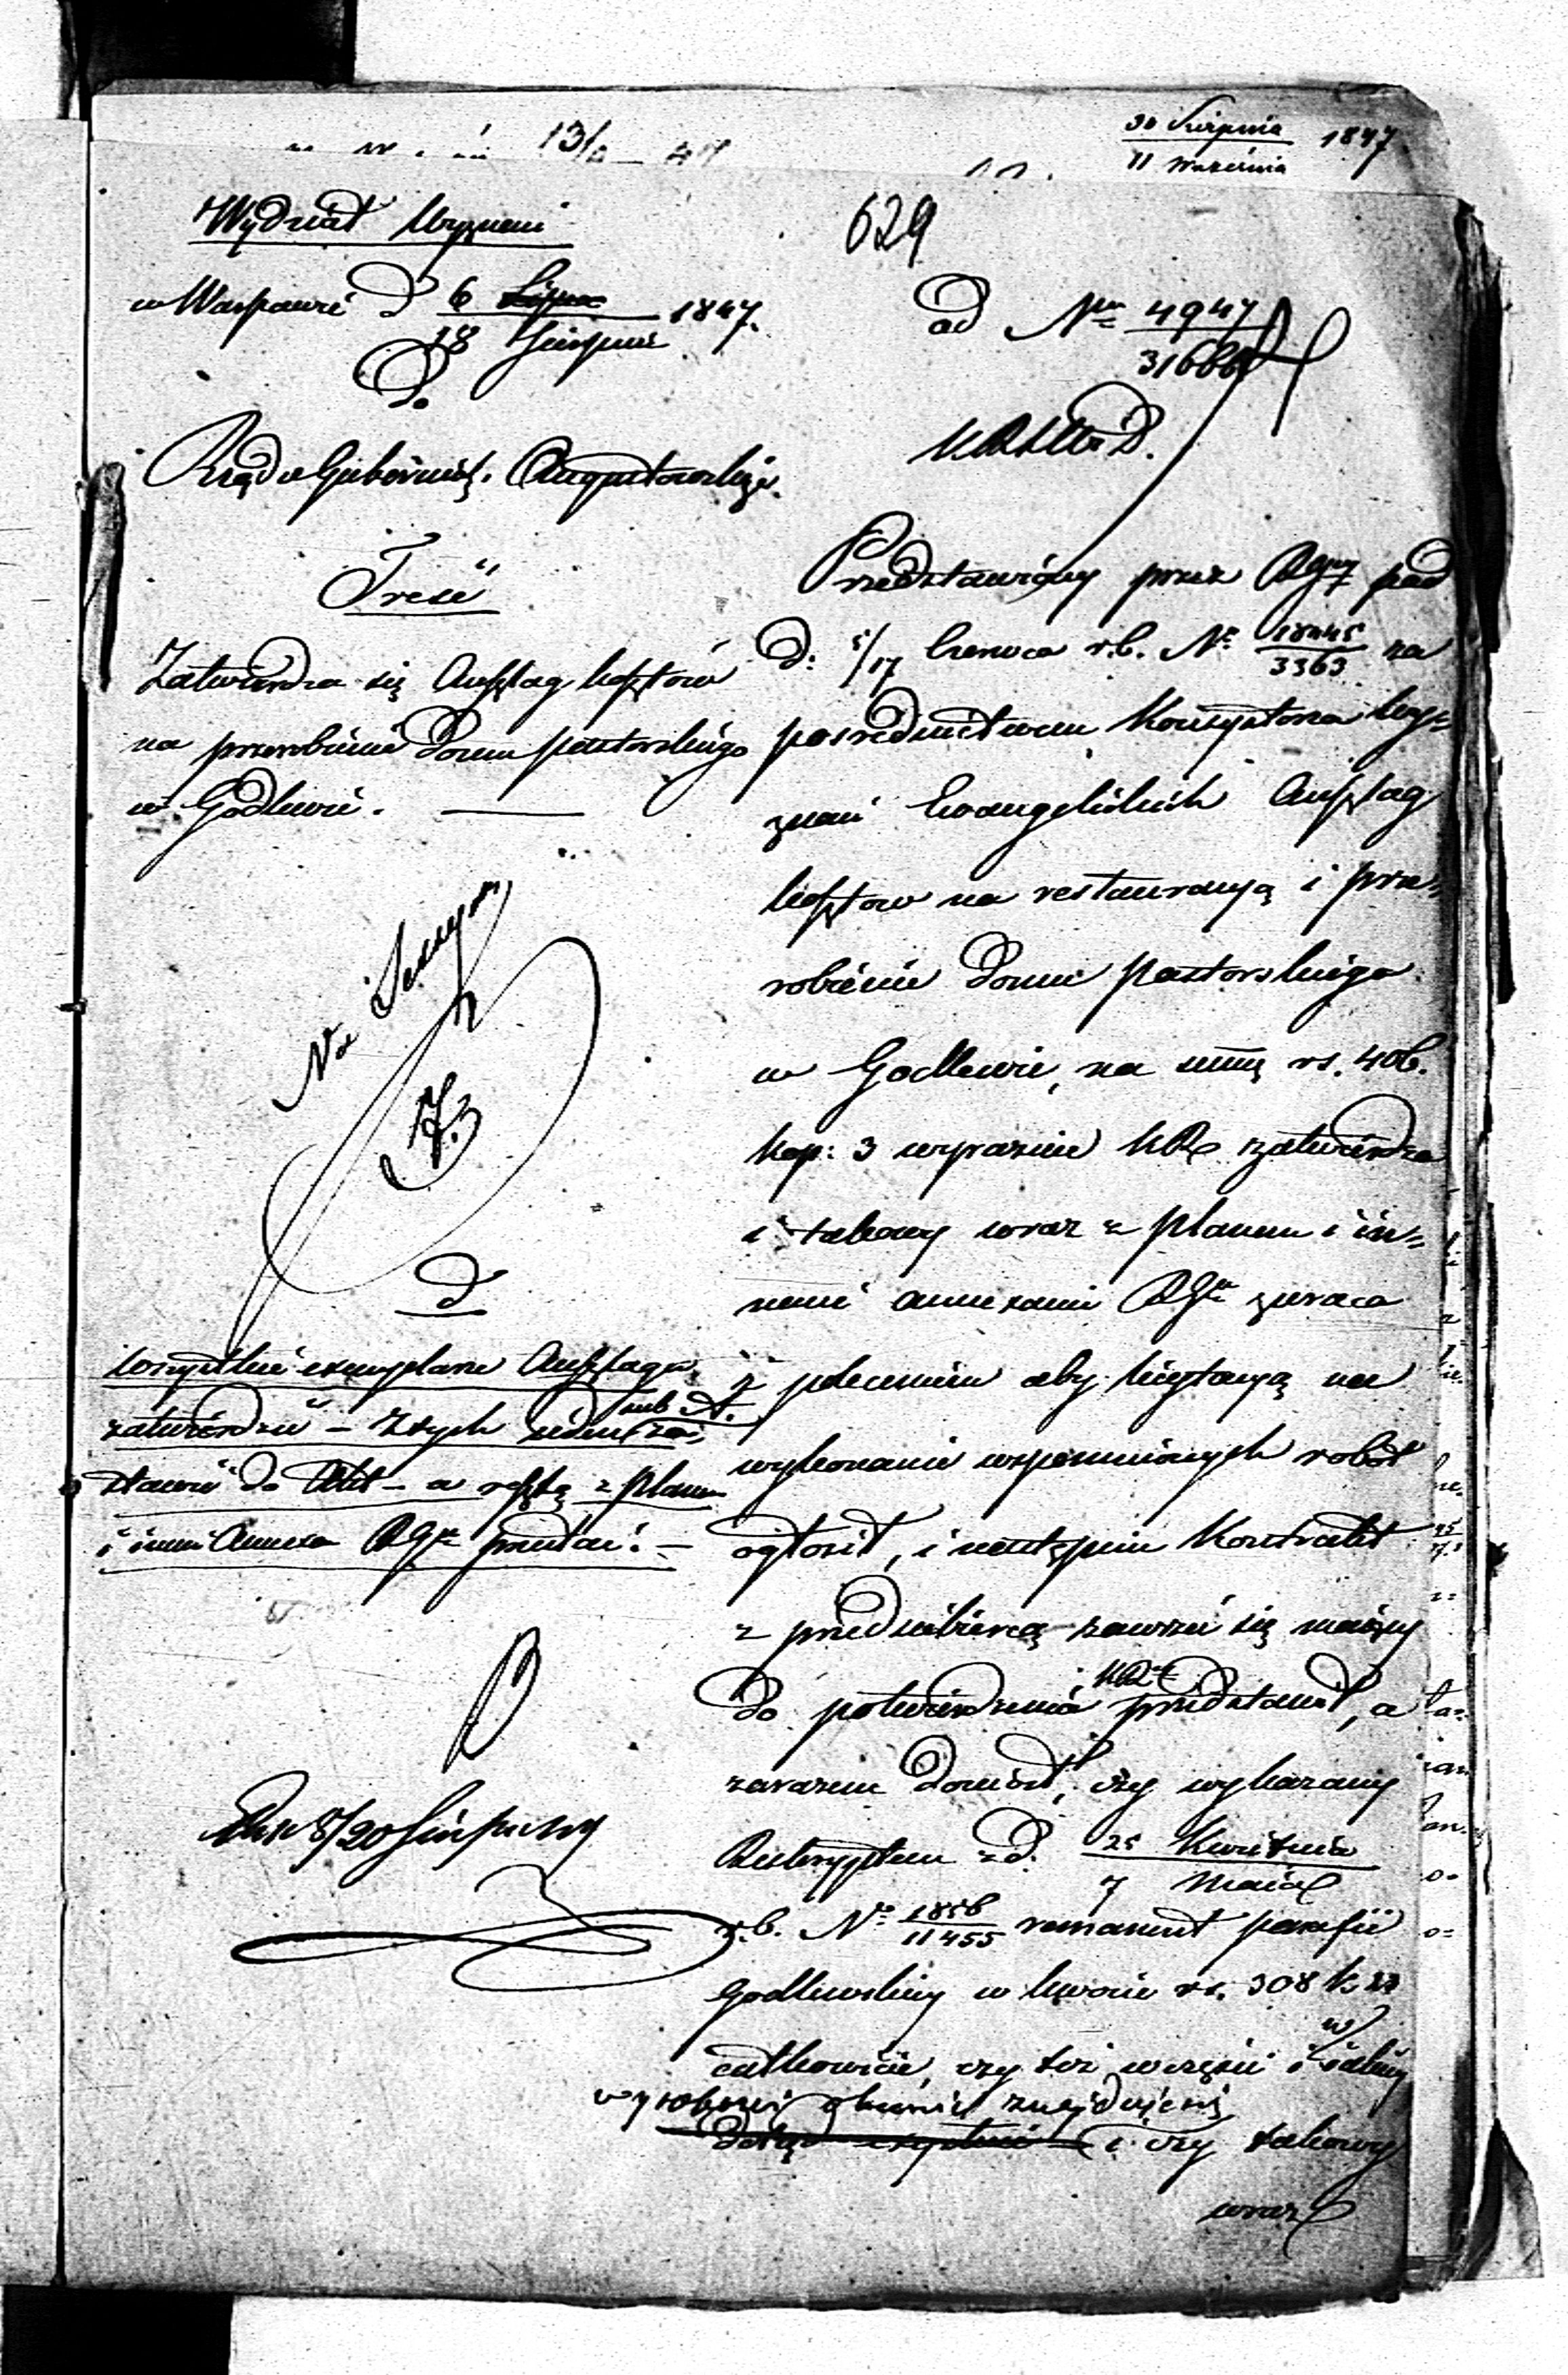 30 Sierpnia
11 Września 1847
13/
Wydział Wyznań
629
w Warszawie d 6 Lipca
18 Sierpnia 1847.
ad Nro 4947
31666
Do
Rządu Guberniq. Augustowskiego.
KRSW D.
Treść
Zatwierdza się Anszlag kosztów
na przerobienie Domu pastorskiego
w Godlewie. —
Na Sessyą
d
wszystkie exemplarze Anszlagu
zatwierdzić – Z tych jeden sub A. zo-
stawić do Akt – a resztę z planem
i inni Annexa RGu
8/20 Sierpnia
Przedstawiony przez RGny pod
d: 5/17 Czerwca r.b. No 18445
3363 za
pośrednictwem Konsystorza Wy=
znań Ewangelickich Anszlag
kosztów na restauracyą i prze=
robienie Domu pastorskiego
w Godlewie, na summę rs. 406.
kop: 3 wyraźnie KR zatwierdza
i takowy wraz z planem i in=
nemi annexami RGu zwraca
z poleceniem aby licytacyą na
wykonanie wspomnionych robót
ogłosił, i następnie Kontrakt
z przedsiębiercą zawrzeć się mający
do potwierdzenia KRi przedstawił, a
zarazem doniósł, czy wykazany
Reskryptem z d. 25 Kwietnia
7 Maia
r.b. No 1856
11455 remanent parafii
Godlewskiey w kwocie rs. 308 k.
całkowicie, czy też w części i w iakiey
obecnie znajduje się
dotąd i czy takowy
wraz